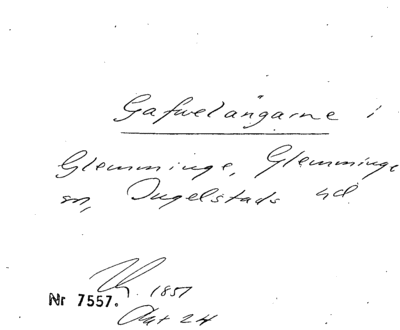 Gafvelängarne i
Glemminge, Glemminge
sn, Ingelstads hd.
1851
Nr 7557.
Akt 24